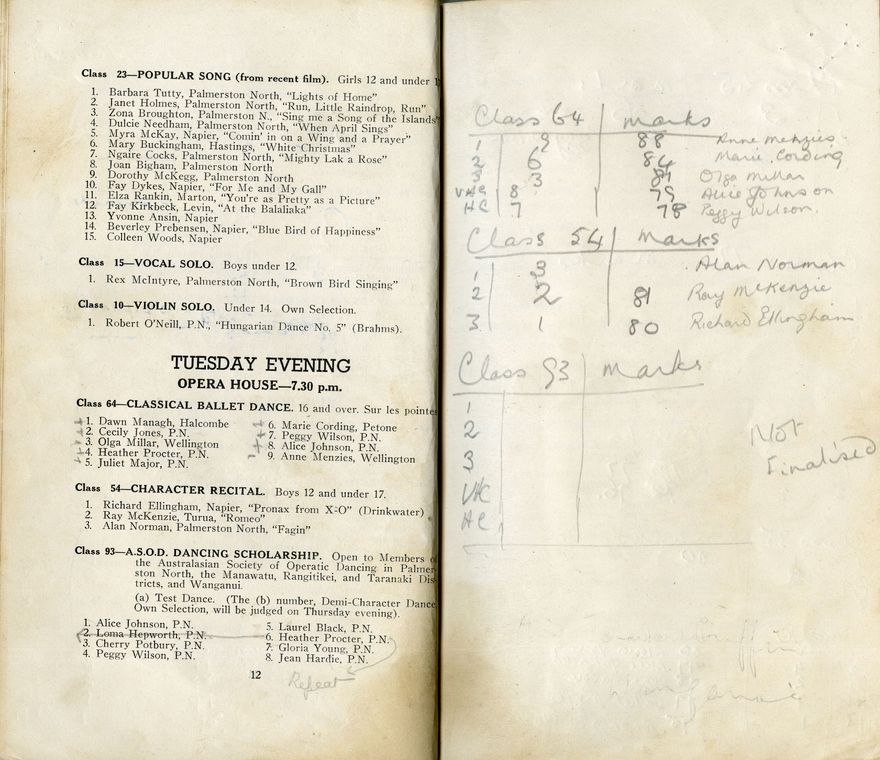 Class 23—POPULAR SONG (from recent film). Girls 12 and under
1. Barbara Tutty, Palmerston North, "Lights of Home"
2. Janet Holmes, Palmerston North, "Run, Little Raindrop, Run"
3. Zona Broughton, Palmerston N., "Sing me a Song of the Islands"
4. Dulcie Needham, Palmerston North, "When April Sings"
5. Myra McKay, Napier, "Comin' in on a Wing and a Prayer"
6. Mary Buckingham, Hastings, "White Christmas"
7. Ngaire Cocks, Palmerston North, "Mighty Lak a Rose"
8. Joan Bigham, Palmerston North
9. Dorothy McKegg, Palmerston North
10. Fay Dykes, Napier, "For Me and My Gall"
11. Elza Rankin, Marton, "You're as Pretty as a Picture"
12. Fay Kirkbeck, Levin, "At the Balalaika"
13. Yvonne Ansin, Napier
14. Beverley Prebensen, Napier, "Blue Bird of Happiness"
15. Colleen Woods, Napier
Class 15—VOCAL SOLO. Boys under 12.
1. Rex McIntyre, Palmerston North, "Brown Bird Singing"
Class 10—VIOLIN SOLO. Under 14. Own Selection.
1. Robert O'Neill, P.N., "Hungarian Dance No. 5" (Brahms).
TUESDAY EVENING
OPERA HOUSE—7.30 p.m.
Class 64—CLASSICAL BALLET DANCE. 16 and over. Sur les pointes
1. Dawn Managh, Halcombe
2. Cecily Jones, P.N.
3. Olga Millar, Wellington
4. Heather Procter, P.N.
5. Juliet Major, P.N.
6. Marie Cording, Petone
7. Peggy Wilson, P.N.
8. Alice Johnson, P.N.
9. Anne Menzies, Wellington
Class 54—CHARACTER RECITAL. Boys 12 and under 17.
1. Richard Ellingham, Napier, "Pronax from X=O" (Drinkwater)
2. Ray McKenzie, Turua, "Romeo"
3. Alan Norman, Palmerston North, "Fagin"
Class 93—A.S.O.D. DANCING SCHOLARSHIP. Open to Members of
the Australasian Society of Operatic Dancing in Palmer-
ston North, the Manawatu, Rangitikei, and Taranaki Dis-
tricts, and Wanganui.
(a) Test Dance. (The (b) number, Demi-Character Dance,
Own Selection, will be judged on Thursday evening).
1. Alice Johnson, P.N.
2. Loma Hepworth, P.N.
3. Cherry Potbury, P.N.
4. Peggy Wilson, P.N.
5. Laurel Black, P.N.
6. Heather Procter, P.N.
7. Gloria Young, P.N.
8. Jean Hardie, P.N.
12
Repeat
Class 64 marks
1 9 88 Anne Menzies
2 6 84 Marie Cording
3 3 81 Olga Millar
VHC 8 79 Alice Johnson
HC 7 78 Peggy Wilson.
Class 54 Marks
1 3 Alan Norman
2 2 81 Ray McKenzie
3. 1 80 Richard Ellingham
Class 93 marks
1
2
3
VHC
HC
Not
Finalised